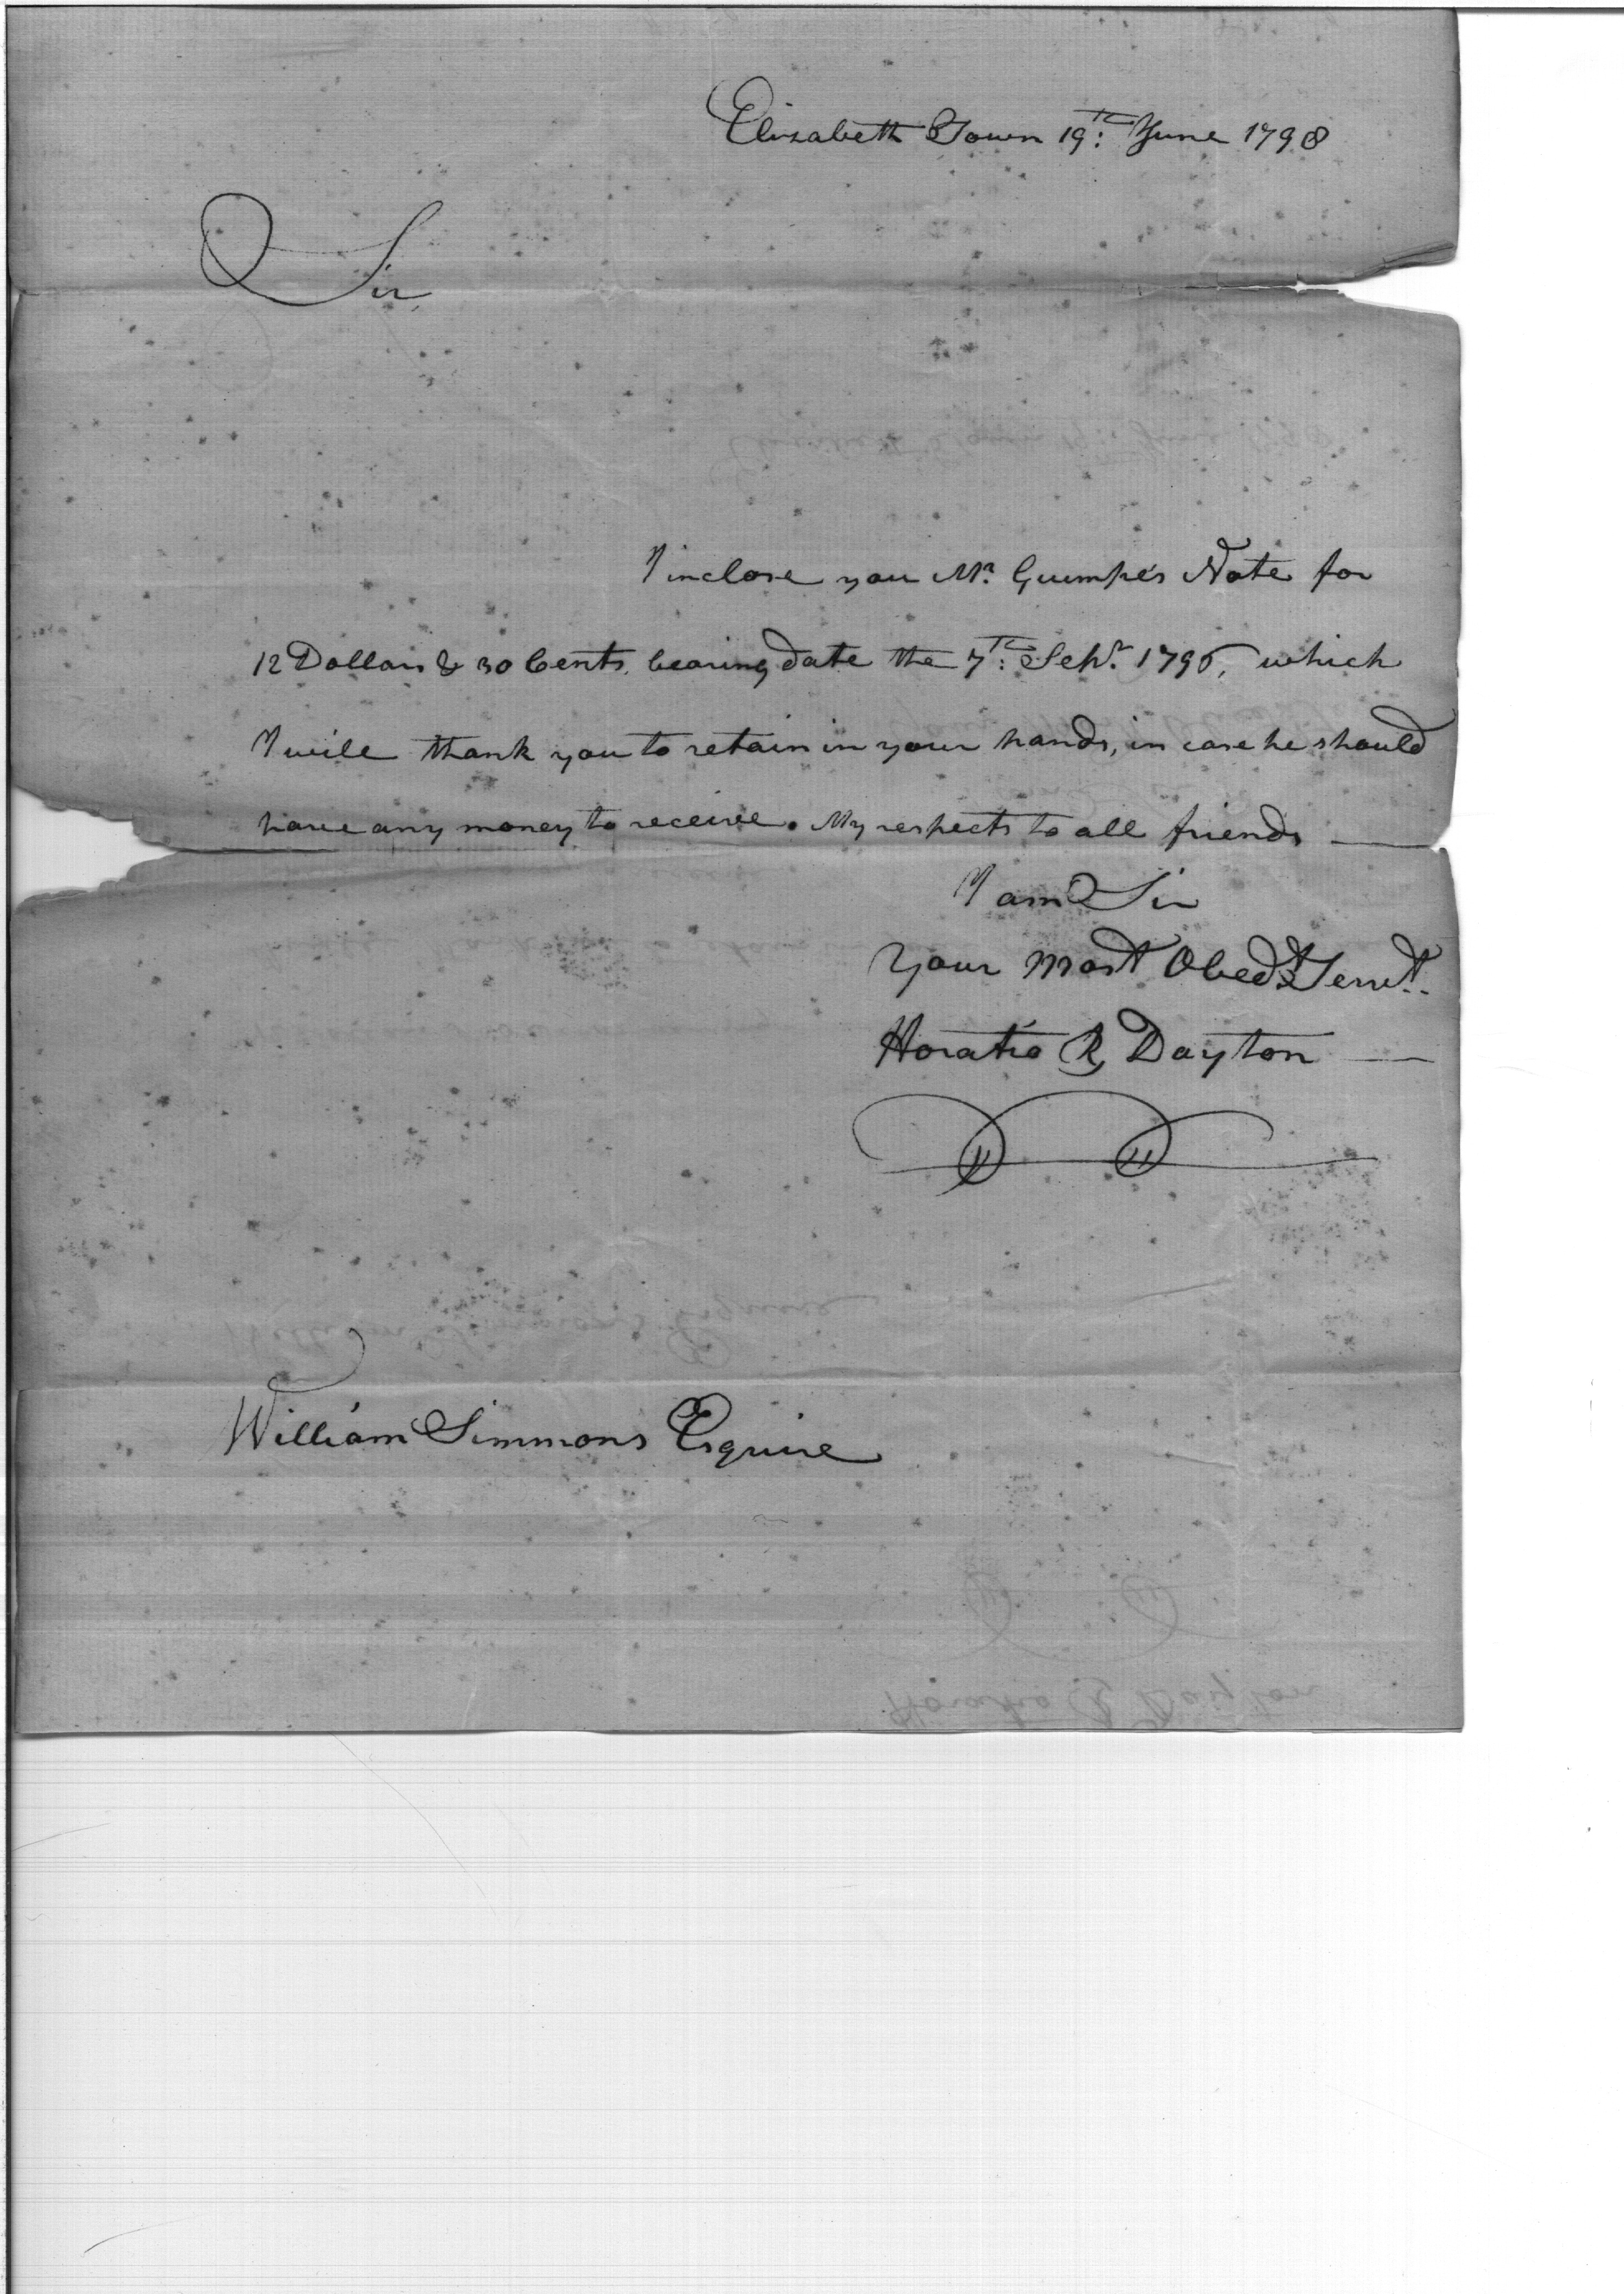 Elizabeth Town 19th: June 1798
Sir,
I inclose you Mr. Gumpe's Note for
12 Dollars & 30 Cents, bearing date the 7th: Sepr. 1796, which
I will thank you to retain in your hands, in case he should
have any money to receive. My respects to all friends —
I am Sir
Your most Obedt Servt.
Horatio R Dayton —
William Simmons Esquire